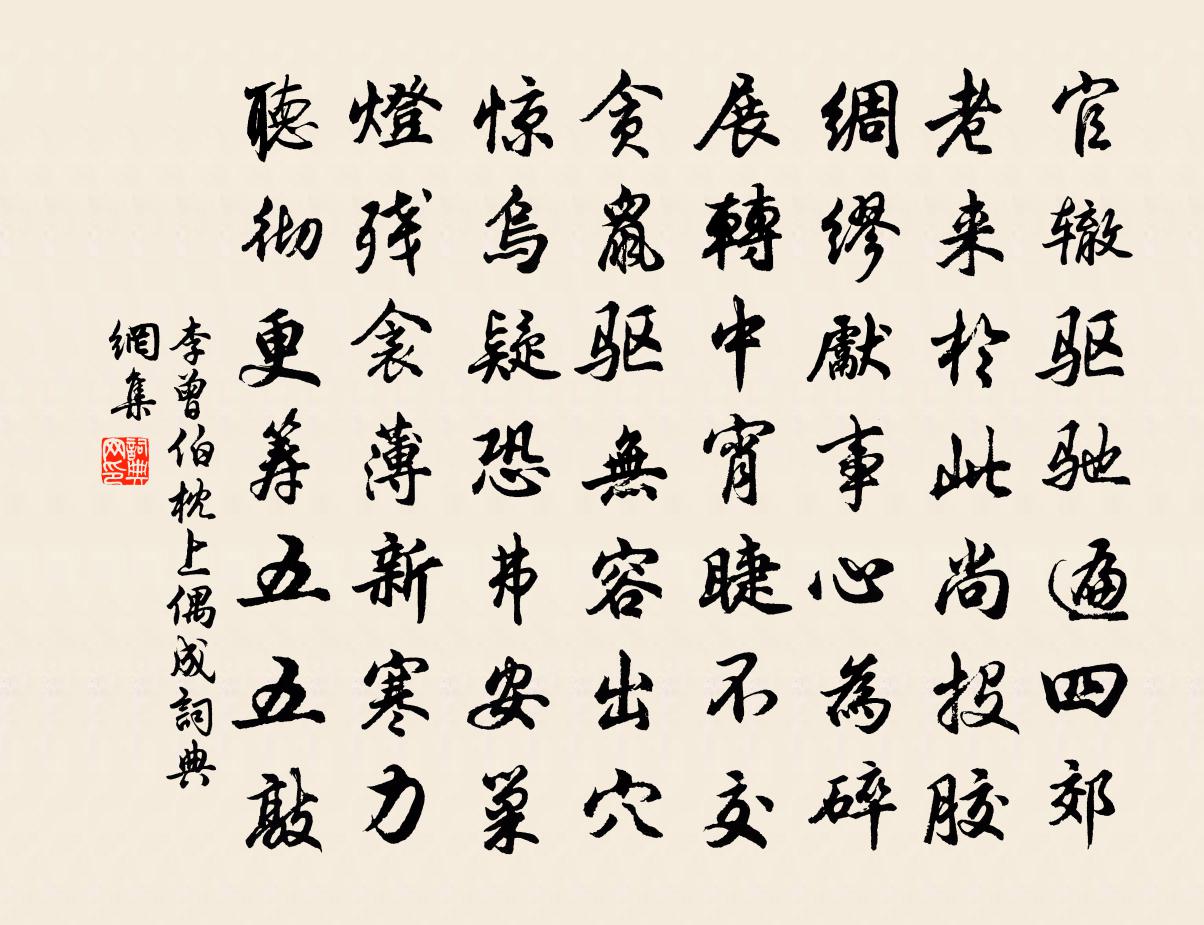 官辙驱驰遍四郊
老来於此尚投胶
绸缪獻事心為碎
展轉中宵睫不交
贪鼠驱無容出穴
惊烏疑恐弗安巢
燈残衾薄新寒力
聽彻更筹五五敲
李曾伯枕上偶成詞典
網集
詞典
网印